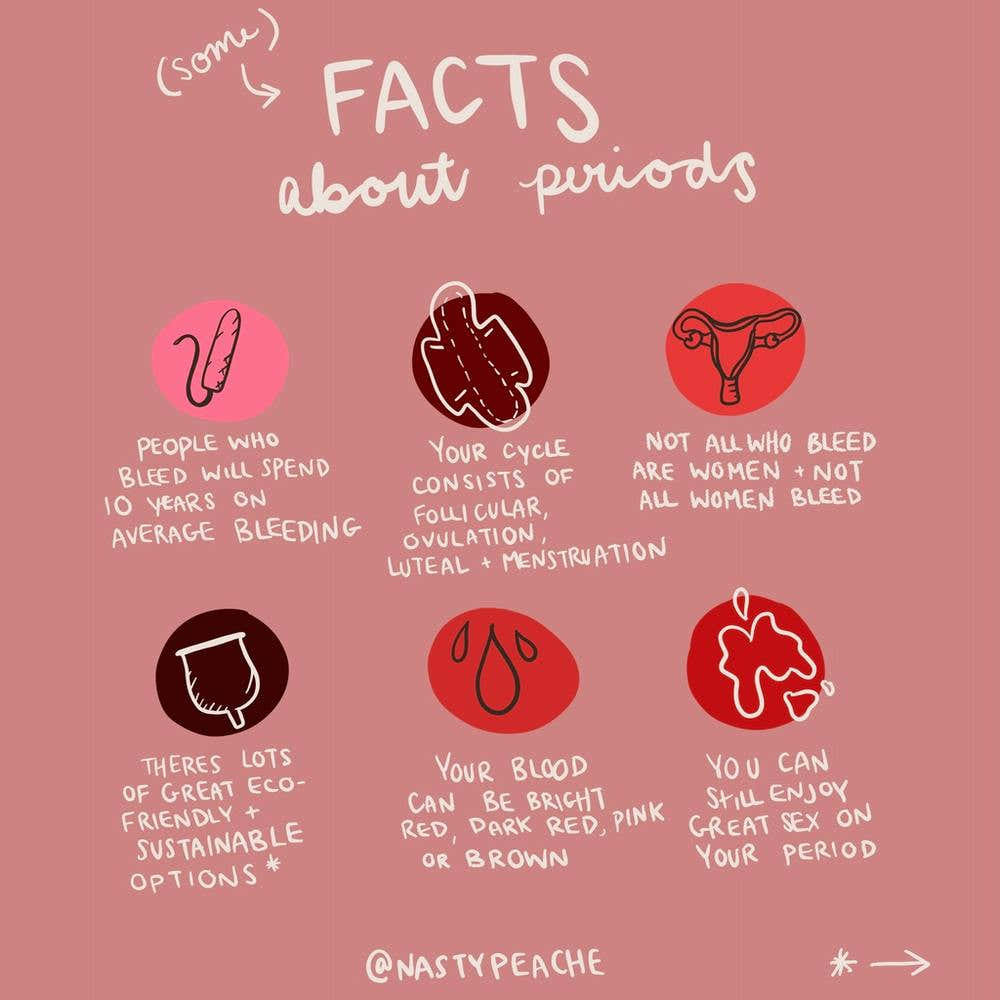 (some)
FACTS
about periods
PEOPLE WHO
BLEED WILL SPEND
10 YEARS ON
AVERAGE BLEEDING
YOUR CYCLE
CONSISTS OF
FOLLICULAR,
OVULATION,
LUTEAL + MENSTRUATION
NOT ALL WHO BLEED
ARE WOMEN + NOT
ALL WOMEN BLEED
THERES LOTS
OF GREAT ECO-
FRIENDLY +
SUSTAINABLE
OPTIONS*
YOUR BLOOD
CAN BE BRIGHT
RED, DARK RED, PINK
OR BROWN
YOU CAN
STILL ENJOY
GREAT SEX ON
YOUR PERIOD
@NASTYPEACHE
* →